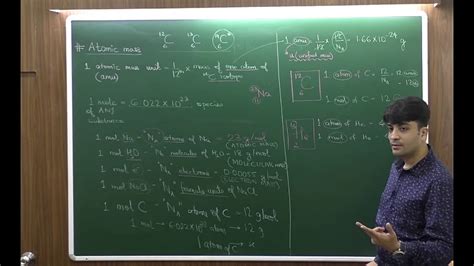 # Atomic mass
12 C 6   13 C 6   14 C 6
1 atomic mass unit = 1/12 th x mass of one atom of
(amu) C isotope
23 Na 11
1 mole = 6.022 x 10^23 species
of ANY
Substance
1 mol Na - "NA" atoms of Na = 23 g/mol
(ATOMIC MASS)
1 mol H2O - "NA" molecules of H2O = 18 g/mol
(MOLECULAR MASS)
1 mol e- - "NA" electrons = 0.00055 g/mol
(ELECTRON MASS)
1 mol NaCl - "NA" formula units of NaCl
1 mol C - "NA" atoms of C = 12 g/mol
1 mol → 6.022 x 10^23 atoms → 12 g
1 atom of C
1 amu = 1/12 x 12/NA = 1.66 x 10^-24 g
12 C 6
1 atom of C = 12 amu
1 mol of C = 12 g
He 2
1 atom of He =
1 mol of He =